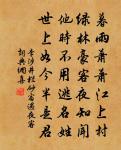 暮雨蕭蕭江上村
綠林豪客夜知聞
他時不用逃名姓
世上如今半是君
李涉井栏砂宿遇夜客
詞典網